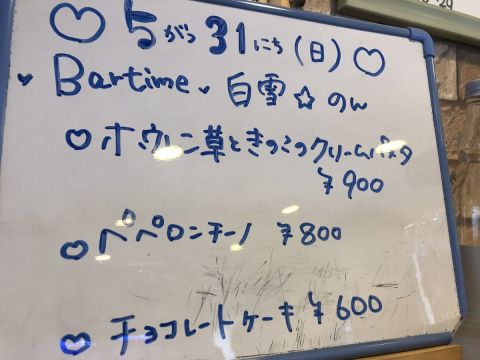 ♡ 5がつ31にち(日) ♡
♥ Bartime ♥ 白雪☆のん
♡ ホウレン草ときのこのクリームパスタ
¥900
♡ ペペロンチーノ ¥800
♡ チョコレートケーキ ¥600